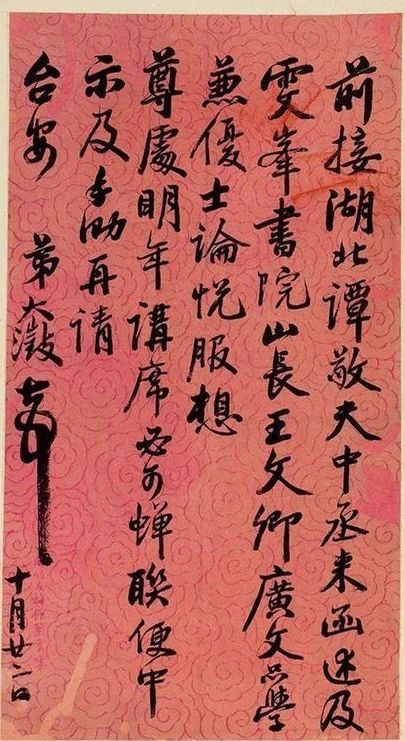 前接湖北譚敬夫中丞来函述及
雯峯書院山長王文卿廣文品學
兼優士論悅服想
尊處明年講席必可蟬聯便中
示及手泐再請
台安 弟大澂頓首
十月廿二日